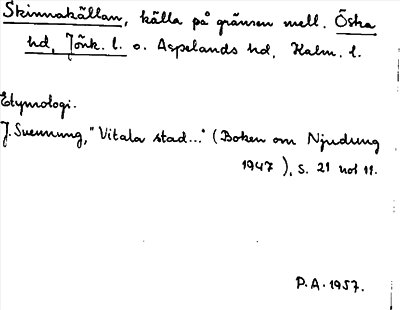 Skinnakällan, källa på gränsen mell. Östra
hd, Jönk. l. o. Aspelands hd, Kalm. l.
Etymologi.
J. Svennung, "Vitala stad..." (Boken om Njudung
1947), s. 21 not 11.
P.A. 1957.